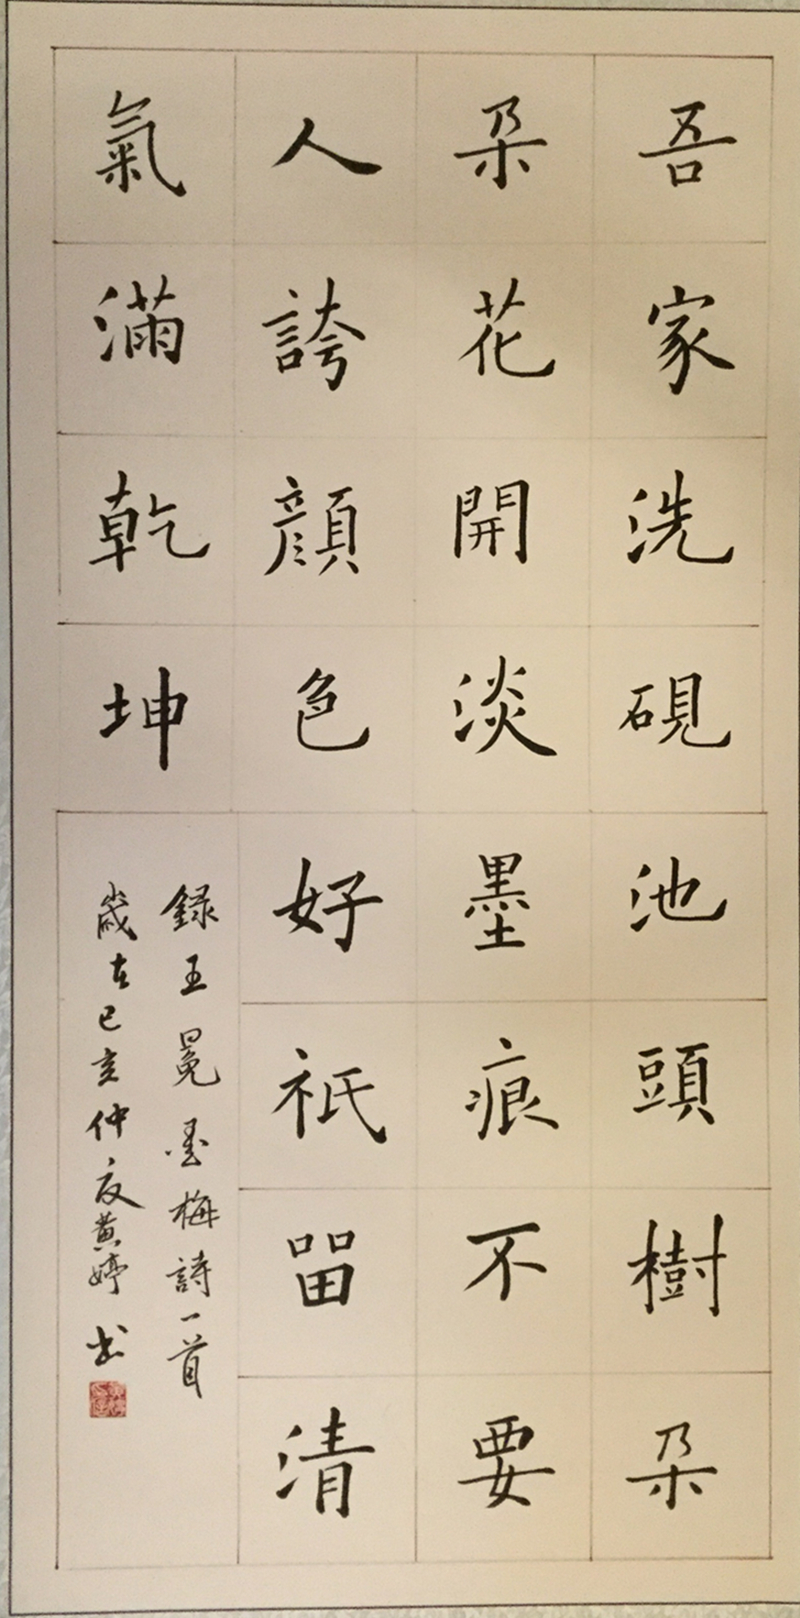 吾家洗硯池頭樹朵
朵花開淡墨痕不要
人誇顔色好祇留清
氣滿乾坤
錄王冕墨梅詩一首
歲在己亥仲夏黄婷书